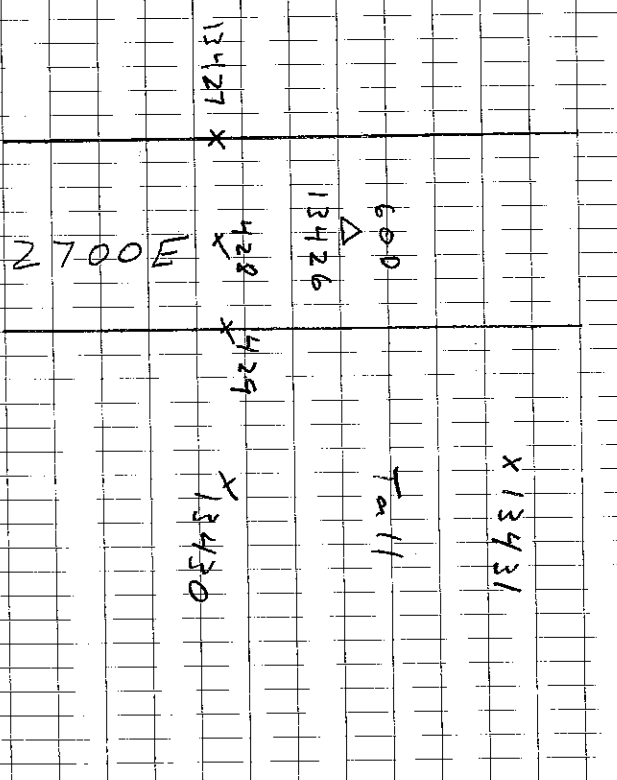 13427
2700E
428
13426
600
429
13430
Tall
13431